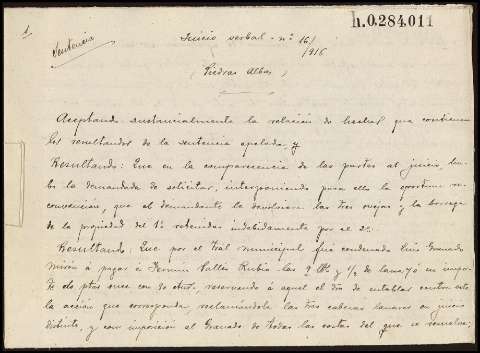 1
h.0.284.011
Sentencia
Juicio verbal - nº 16/
/916
(Piedras Albas)
Aceptando sustancialmente la relación de hechos que contienen
los resultandos de la sentencia apelada, y
Resultando: Que en la comparecencia de las partes al juicio,
la demandada de solicitar, interponiendo para ello la oportuna re-
convención, que el demandante le devolviera las tres ovejas y la borrega
de la propiedad del 1º retenidas indebidamente por el 2º.
Resultando: Que por el Tral municipal que condenado Luis Granado
Mirón a pagar a Fermín Salles Rubio las 9 @ y 1/2 de lana, o en impor-
te de ptas once con do ctvs, reservando a aquel el dro de entablar contra este
la acción que corresponda, reclamándole las tres cabezas lanares en juicio
distinto, y con imposición al Granado de todas las costas del que se resuelve;